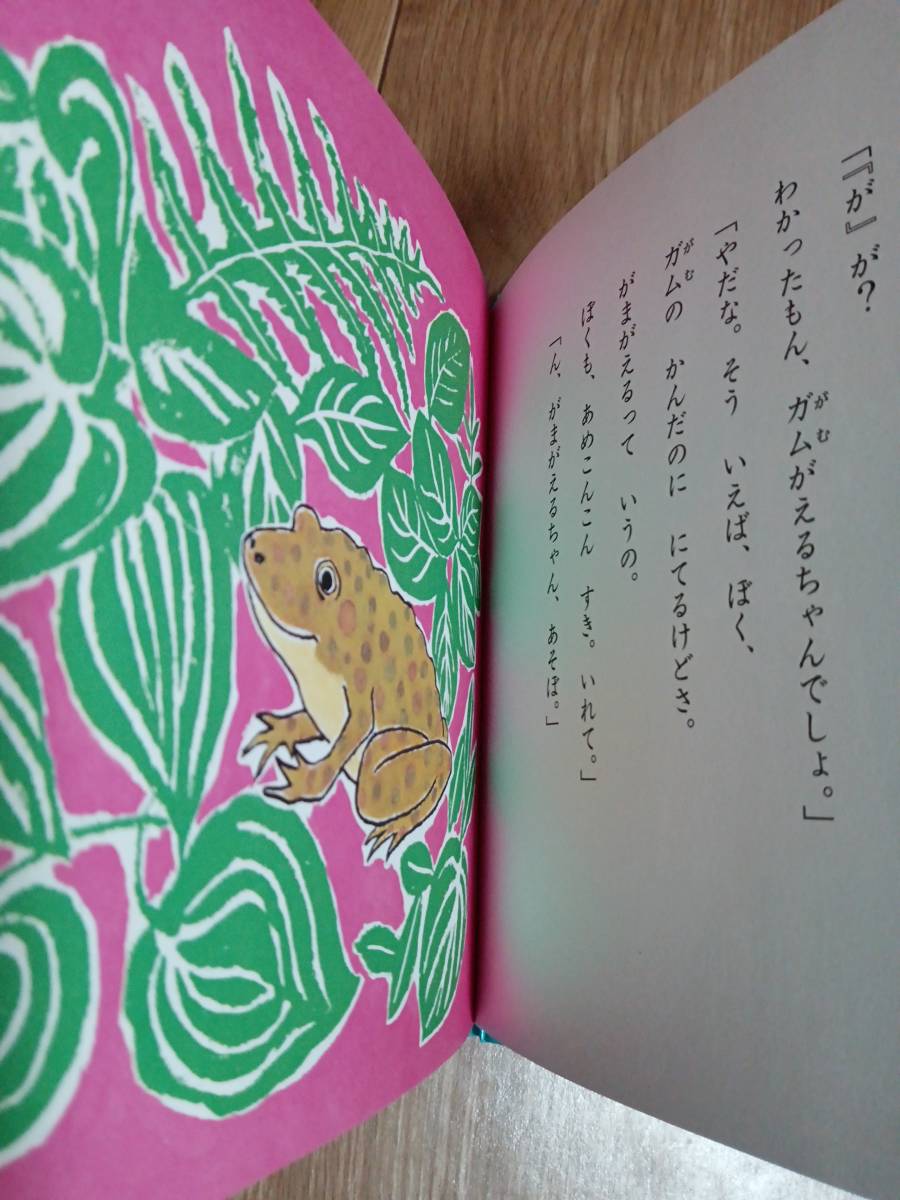 「『が』が？
わかったもん、ガムがえるちゃんでしょ。」
「やだな。そう　いえば、ぼく、
ガムの　かんだのに　にてるけどさ。
がまがえるって　いうの。
ぼくも、あめこんこん　すき。いれて。」
「ん、がまがえるちゃん、あそぼ。」